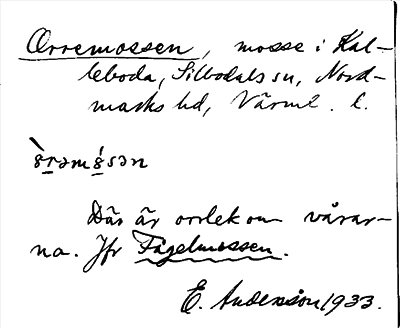 Orremossen, mosse i Kal-
leboda, Silbodals sn, Nord-
marks hd, Värml. l.
`ɞrəmɞ́sən
Där är orrlek om vårar-
na. Jfr Fågelmossen.
E. Andersson 1933.